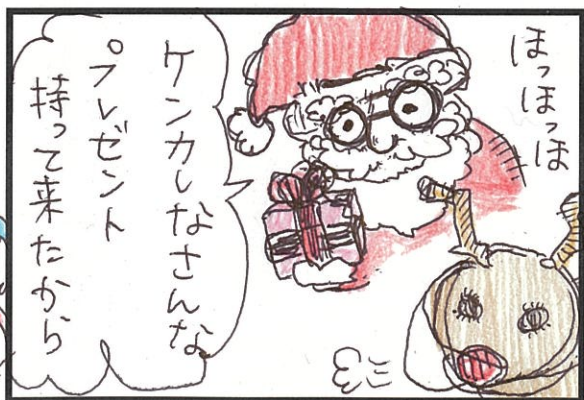 ほっほっほ
ケンカしなさんな
プレゼント
持って来たから